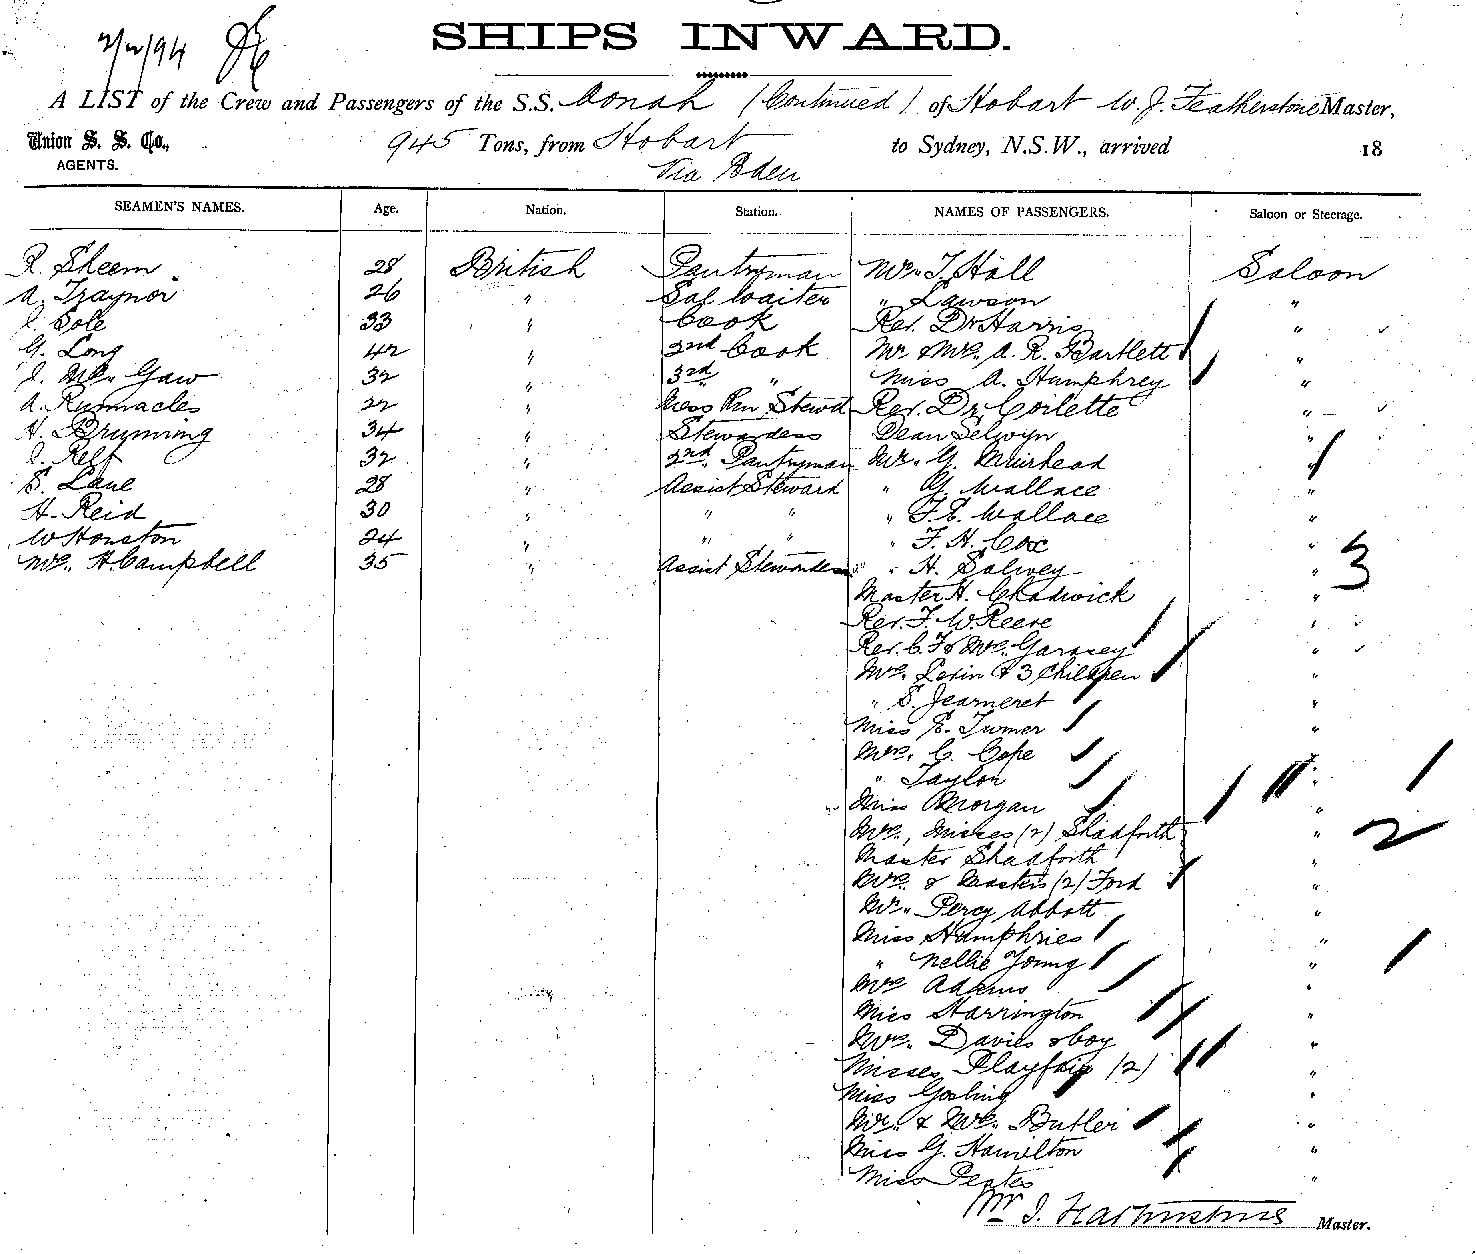 2/2/94
SHIPS INWARD.
A LIST of the Crew and Passengers of the S.S. Oonah (Continued) of Hobart W. J. Featherstone Master,
Union S. S. Co., 945 Tons, from Hobart to Sydney, N.S.W., arrived 18
AGENTS. Via Eden
SEAMEN'S NAMES. Age. Nation. Station. NAMES OF PASSENGERS. Saloon or Steerage.
R. Sheem 28 British Pantryman Mr. T. Hall Saloon
A. Traynor 26 " Sal Waiter " Lawson "
Sole 33 " Cook Rev. Dr Harris "
G. Long 42 " 2nd Cook Mr & Mrs. A. R. Bartlett "
Mc. Gaw 32 " 3rd " Miss A. Humphrey "
A. Runnacles 22 " Mess Rm Stewd Rev. Dr. Corlette "
H. Bruming 34 " Stewardess Dean Selwyn "
Relf 32 " 2nd. Pantryman Mr. G. Muirhead "
S. Lane 28 " Assist Steward " G. Wallace "
H. Reid 30 " " " " F. E. Wallace "
W Houston 24 " " " " F. H. Cox "
Mrs. H. Campbell 35 " Assist Stewardess " H. Salwey " 3
Master H. Chadwick "
Rev. F. W. Reeve "
Rev. C. F & Mrs. Garnsey "
Mrs. Levin & 3 Children "
" S. Jearneret "
Miss E. Turner "
Mrs. C. Cope "
" Taylor " 1
Miss Morgan "
Mrs., Misses (2) Shadforth " 2
Master Shadforth "
Mrs. & Masters (2) Ford "
Mr. Percy Abbott "
Miss Humphries "
" Nellie Young " 1
Mrs Adams "
Miss Harrington "
Mrs. Davies & boy "
Misses Playfair (2) "
Miss Gosling "
Mr. & Mrs. Butler "
Miss G. Hamilton "
Miss Peates "
J. Featherstone Master.